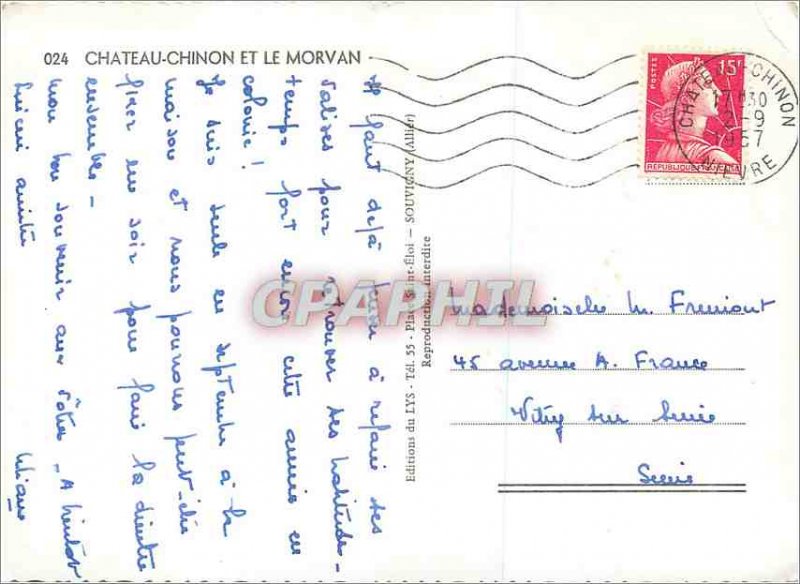 024 CHATEAU-CHINON ET LE MORVAN
Il faut déjà penser à refaire ses
valises pour retrouver ses habitudes -
temps fort en cette année en
colonie !
Je suis seule en septembre à la
maison et nous pourrons peut-être
fixer un soir pour faire la dinette
ensembles -
mon bon souvenir aux vôtres - A bientôt
amitié
Liliane
Editions du LYS - Tél. 55 - Place Saint-Eloi - SOUVIGNY (Allier)
Reproduction interdite
POSTES
15F
REPUBLIQUE FRANÇAISE
CHATEAU-CHINON
17 H30
2-9
1957
NIEVRE
CPAPHIL
Mademoiselle M. Fremont
45 avenue A. France
Vitry sur Seine
Seine